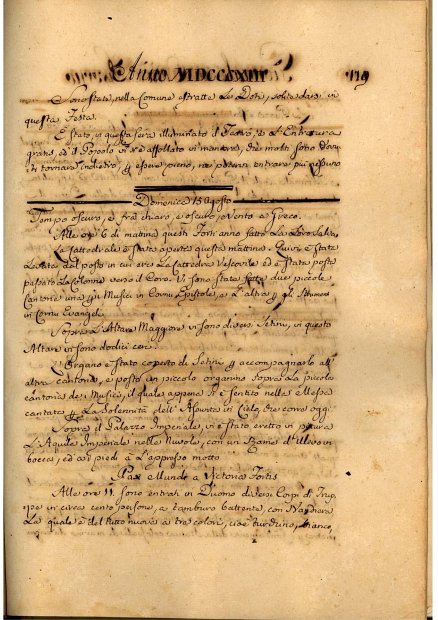 Anno MDCCCXIII 119
Sono state, nella Comune estratte le Doti, solite darsi in
questa Festa.
È stato, in questa sera illuminato il Teatro, e L'Entratura
gratis, ed il Popolo vi si è affollato in maniera, che molti sono dovu-
ti tornare indietro, per essere pieno, ne potevan entrare più nessuno
Domenica 15 agosto
Tempo oscuro, e frà chiaro, e oscuro, e vento a Greco.
Alle ore 6 di mattina questi Forti anno fatto La Loro Salva.
La Cattedrale è stata aperta questa mattina. Quivi è stata
Levata dal posto in cui era La Cattedra Vescovile ed è stata posta
passato Le Colonne verso il Coro. Vi sono state fatte due piccole
Cantorie una per i Musici in Cornu Epistole, e L'altra per gli Strumenti
in Cornu Evangeli.
Sopra L'Altare Maggiore vi sono diversi Setini, in questo
Altare vi sono dodici ceri.
L'Organo è stato coperto di Setini per accompagnarlo all'
altra cantoria, e posto un piccolo organino sopra La piccola
cantoria dei Musici, il quale appena si è sentito nella Messa
cantata per La Solennità dell'Assunta in Cielo, che corre oggi.
Sopra il Palazzo Imperiale, vi è stato eretto in pittura
L'Aquila Imperiale nelle Nuvole, con un Ramo d'Ulivo in
bocca, ed ai piedi à L'appresso motto
Pax Mundo a Victoria Fortis
Alle ore 11. sono entrati in Duomo diversi Corpi di Trup-
pe in circa cento persone, a tamburo battente, con Bandiera
La quale è del tutto nuova a tre colori, cioè turchino, bianco,